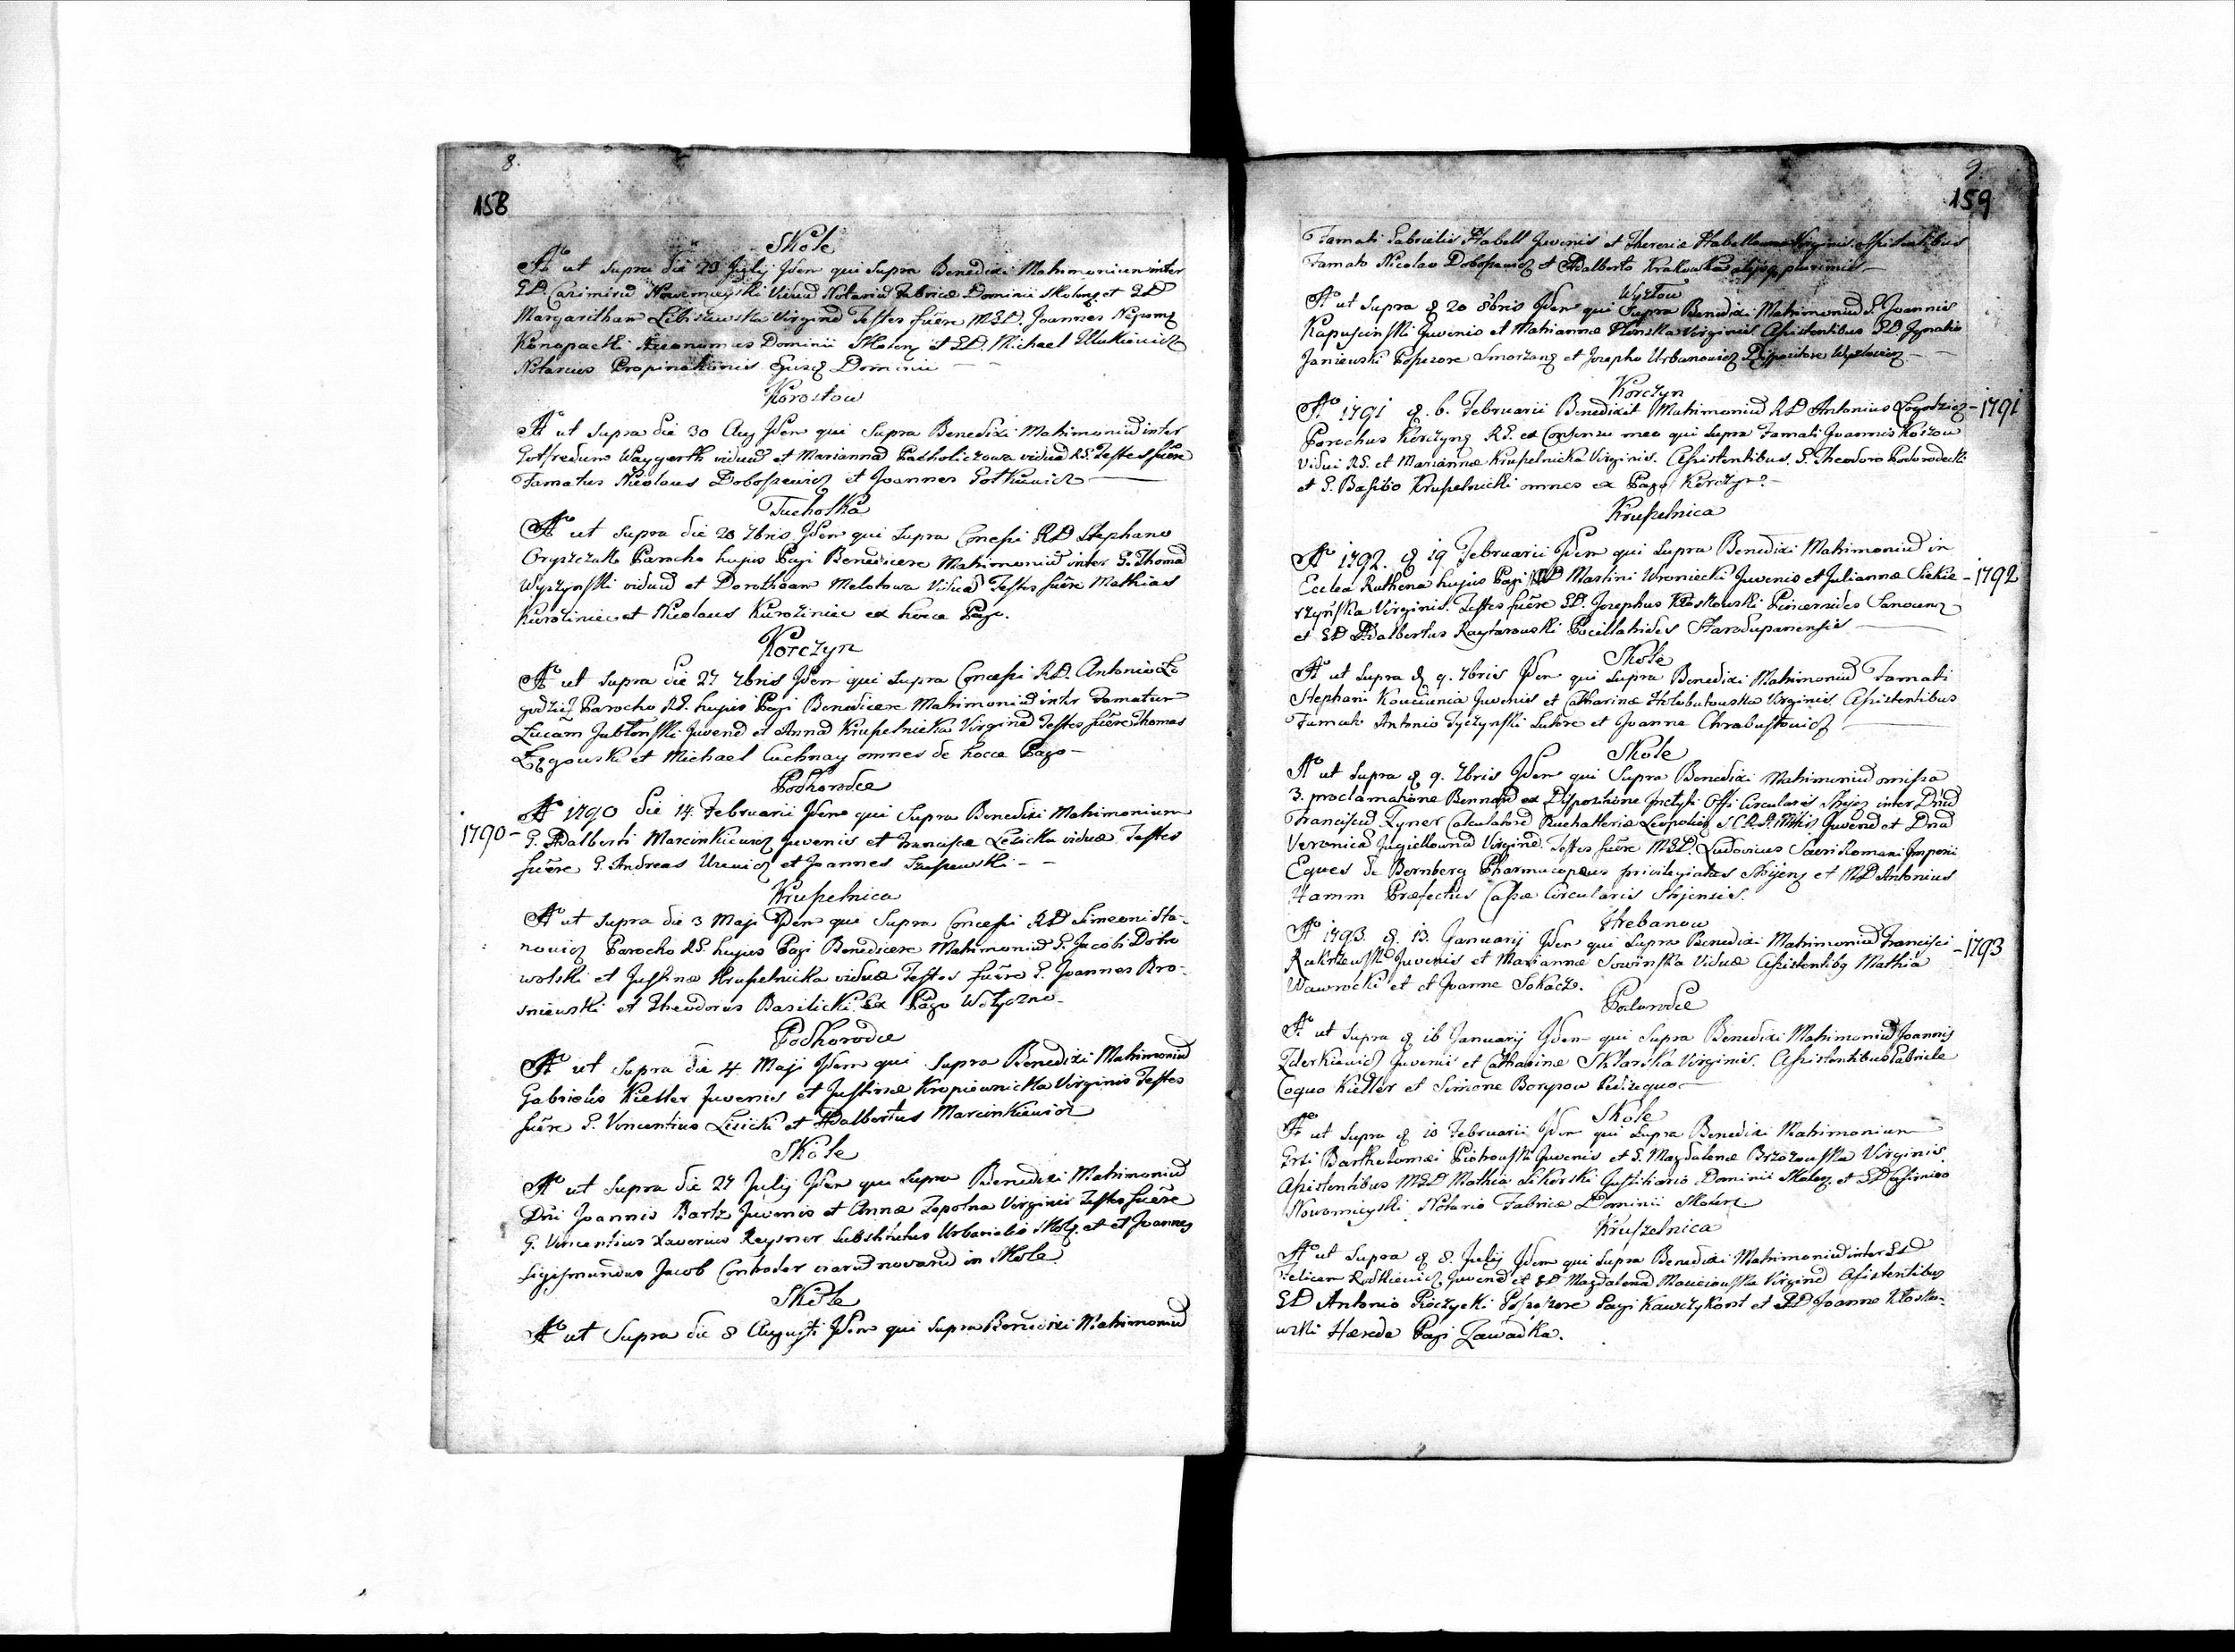 8.
158
Skole
Aº ut supra die 29 Julij Idem qui supra Benedixi Matrimonium inter
GD. Casimirū Nowomieyski viduū Notariū Fabricæ Dominii Skolens et GD
Margaritham Lebiszewska Virginē Testes fuēre MGD. Joannes Nepom
Konopacki Œconomus Dominii Skolens et GD. Michael
Notarius Propinationis Ejusq Dominii
Korostow
Aº ut supra die 30 Aug Idem qui supra Benedixi Matrimoniū inter
Gotfredum Waygerth viduū et Mariannā viduā RG. Testes fuēre
Famatus Nicolaus Doboszewicz et Joannes Gotkiewicz
Tucholka
Aº ut supra die 20 7bris Idem qui supra Concessi RD Stephano
Oryszczak Parocho hujus Pagi Benedicere Matrimoniū inter G. Thomā
Wyszyński viduū et Dorotheam Melotowa Viduā Testes fuēre Mathias
Kuroliniec et Nicolaus Kuroliniec ex hocce Pago.
Korczyn
Aº ut supra die 27 7bris Idem qui supra Concessi RD. Antonio Ło
godzicz Parocho RG. hujus Pagi Benedicere Matrimoniū inter Famatum
Lucam Jabłoński Juvenē et Annā Kruszelnicka Virginē Testes fuēre Thomas
et Michael Cuchnay omnes de hocce Pago
Podhorodce
Aº 1790 die 14 Februarii Idem qui supra Benedixi Matrimonium
1790 - G. Adalberti Marcinkiewicz juvenis et Franciscæ Lesicka viduæ Testes
fuēre G. Andreas et Joannes
Kruszelnica
Aº ut supra die 3 Maji Idem qui supra Concessi RD Simeoni Sta-
nowicz Parocho RG. hujus Pagi Benedicere Matrimoniū G. Jacobi Dobro
wolski et Justinæ Kruszelnicka viduæ Testes fuēre G. Joannes Bro-
sniewski et Theodorus Basilicki ex Pago
Podhorodce
Aº ut supra die 4 Maji Idem qui supra Benedixi Matrimoniū
Gabrielis Kietler Juvenis et Justinæ Kropiownicka Virginis Testes
fuēre G. Vincentius Lisicki et Adalbertus Marcinkiewicz
Skole
Aº ut supra die 27 Julij Idem qui supra Benedixi Matrimoniū
Dñi Joannis Bartz Juvenis et Annæ Zopotna Virginis Testes fuēre
G. Vincentius Xaverius Reysner Substitutus Urbarialis Skols. et et Joannes
Sigismundus Jacob Controler viarū novarū in Skole
Skole
Aº ut supra die 8 Augusti Idem qui supra Benedixi Matrimoniū
9.
159
Famati Gabrielis Habell Juvenis et Theresiæ Virginis. Assistentibus
Famato Nicolao Doboszewicz et Adalberto Krakowka alijsq plurimis
Wyzlow
Aº ut supra d 20 8bris Idem qui supra Benedixi Matrimoniū G. Joannis
Kapuscinski Juvenis et Mariannæ Virginis Assistentibus GD. Ignatio
Janiewski Possessore Smorzans et Josepho Urbanowicz Dispositore
Korczyn
Aº 1791 d. 6. Februarii Benedixit Matrimoniū RD Antonius Łogodzicz - 1791
Parochus Korczyns RG. ex Consensu meo qui supra Famati Joannis Koszow
Vidui RG. et Mariannæ Kruszelnicka Virginis. Assistentibus. G. Theodoro Podhorodecki
et G. Basilio Kruszelnicki omnes ex Pago Korczyn
Kruszelnica
Aº 1792. d 19 Februarii Idem qui supra Benedixi Matrimoniū in
Ecclea Ruthena hujus Pagi GD Martini Wroniecki Juvenis et Juliannæ Siekie - 1792
rzyńska Virginis. Testes fuēre GD. Josephus Kłoskowski Pincernides Sanocens
et GD Adalbertus Raytarowski Pocillatrides
Skole
Aº ut supra d. 9. 7bris Idem qui supra Benedixi Matrimoniū Famati
Stephani Juvenis et Catharinæ Virginis Assistentibus
Famato Antonio Tyczynski Sutore et Joanne Chrabustowicz
Skole
Aº ut supra d 9. 7bris Idem qui supra Benedixi Matrimoniū omissa
3. proclamatione Bennorū ex Dispositione Inclyti Offi Circularis Stryens inter Dnū
Franciscū Zyner Calculatorē Buchalteriæ Leopoliens Juvenē et Dnā
Veronicā Virginē. Testes fuēre MGD. Ludovicus Sacri Romani Imperii
Eques de Bernberg Pharmacopæus privilegiatus Stryiens et MD Antonius
Hamm Præfectus Cassæ Circularis Stryensis.
Hrebanow
Aº 1793. d. 13. Januarij Idem qui supra Benedixi Matrimoniū Francisci - 1793
Juvenis et Mariannæ Sowinska Viduæ Assistentibq Mathia
Wawrocki et et Joanne Sokacz.
Podorodce
Aº ut supra d 16 Januarij Idem qui supra Benedixi Matrimoniū Joannis
Juvenis et Catharinæ Sklarska Virginis. Assistentibus Gabriele
Coquo Kietler et Simone
Skole
Aº ut supra d 10 Februarii Idem qui supra Benedixi Matrimonium
Grsi Bartholomæi Piotrowski Juvenis et G. Magdalenæ Brzozowska Virginis.
Assistentibus MGD Mathia Sikorski Justitiario Dominii Skolens et GD Casimiro
Nowomieyski Notario Fabricæ Dominii Skolens
Kruszelnica
Aº ut supra d 8. Julij Idem qui supra Benedixi Matrimoniū inter GD
Felicem Rutkiewicz Juvenē et GD Magdalenā Virginē Assistentibus
GD Antonio Possessore Pagi et GD Joanne Kłosko-
wski Hærede Pagi Zawadka.